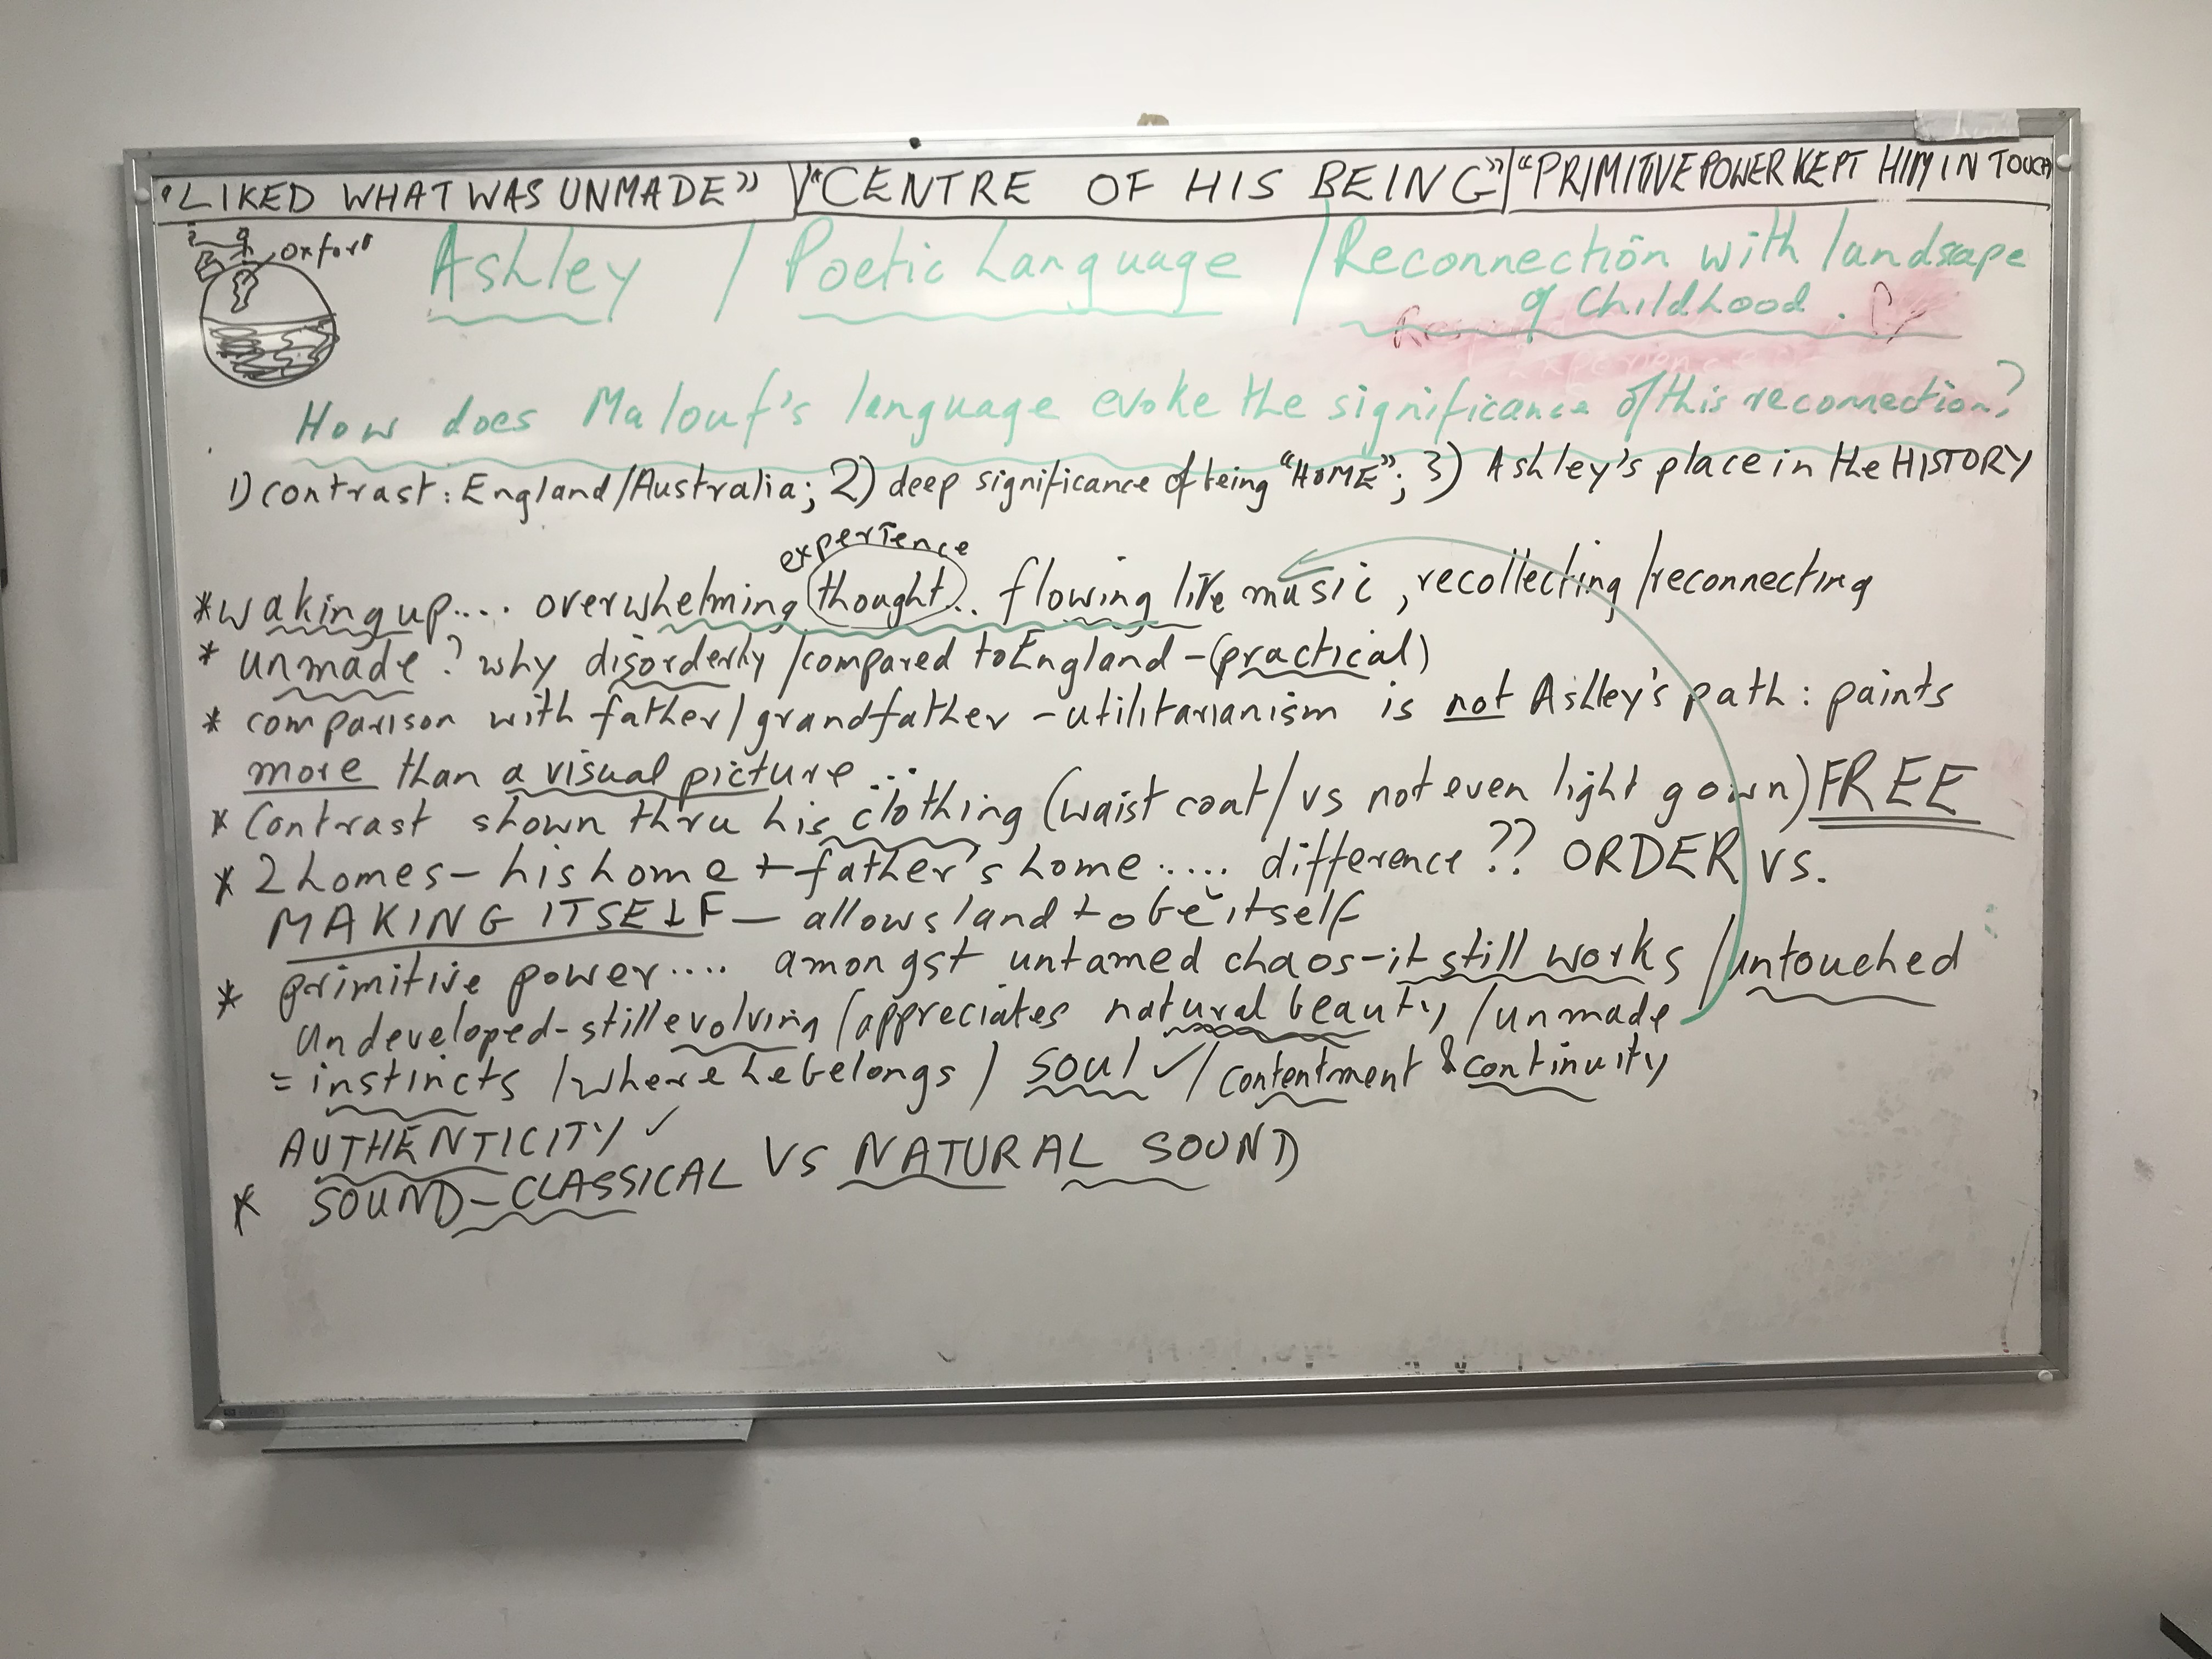 "LIKED WHAT WAS UNMADE" "CENTRE OF HIS BEING" "PRIMITIVE POWER KEPT HIM IN TOUCH
Oxford
Ashley / Poetic Language / Reconnection with landscape
of Childhood.
How does Malouf's language evoke the significance of this reconnection?
1) contrast: England/Australia; 2) deep significance of being "HOME"; 3) Ashley's place in the HISTORY
experience
*waking up.... overwhelming thought... flowing like music, recollecting/reconnecting
* unmade? why disorderly /compared to England-(practical)
* comparison with father/grandfather - utilitarianism is not Ashley's path: paints
more than a visual picture...
* Contrast shown thru his clothing (waist coat/vs not even light gown) FREE
* 2 homes- his home + father's home ..... difference?? ORDER VS.
MAKING ITSELF - allows land to be itself
* primitive power.... amongst untamed chaos-it still works /untouched
undeveloped-still evolving /appreciates natural beauty /unmade
= instincts /where he belongs / soul ✓ / contentment & continuity
AUTHENTICITY ✓
* SOUND-CLASSICAL VS NATURAL SOUND